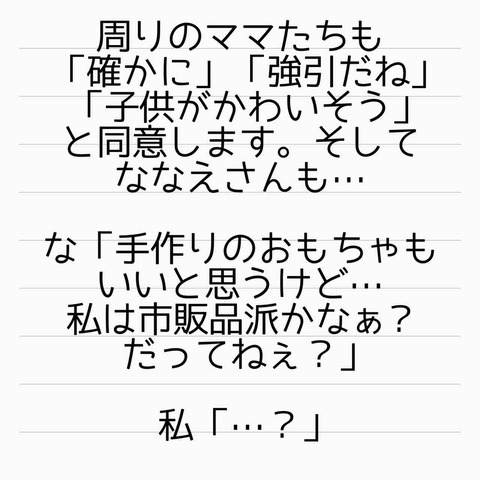 周りのママたちも
「確かに」「強引だね」
「子供がかわいそう」
と同意します。そして
ななえさんも…
な「手作りのおもちゃも
いいと思うけど…
私は市販品派かなぁ？
だってねぇ？」
私「…？」